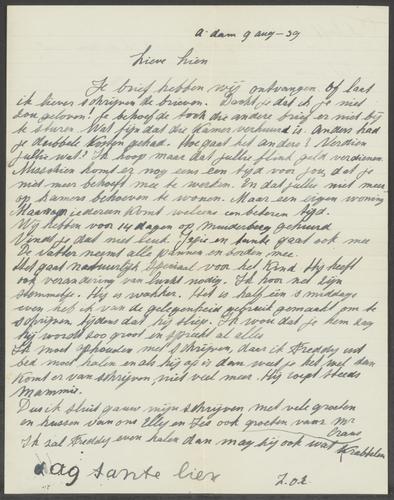 A'dam 9 aug-39
Lieve Lien
Je brief hebben wij ontvangen of laat
ik liever schrijven de brieven. Dacht je dat ik je niet
zou geloven? Je behoefde toch die andere brief er niet bij
te sturen. Wat fijn dat die kamer verhuurd is. Anders had
je dubbele kosten gehad. Hoe gaat het anders? Verdien
jullie wat? Ik hoop maar dat jullie flink geld verdienen.
Misschien komt er nog eens een tijd voor jou, dat je
niet meer behoeft mee te werken. En dat jullie niet meer
op kamers behoeven te wonen. Maar een eigen woning
Maar voor iedereen komt weleens een betere tijd.
Wij hebben voor 14 dagen op Muiderberg gehuurd
Vindt je dat niet leuk. Jopie en tante gaat ook mee
De vatter neemt alle pannen en borden mee.
Het gaat natuurlijk speciaal voor het kind. Hij heeft
ook verandering van lucht nodig. Ik hoor net zijn
stemmetje. Hij is wakker. Het is half één s'middags
even heb ik van de gelegenheid gebruik gemaakt om te
schrijven tijdens dat hij sliep. Ik wou dat je hem zag
hij wordt zoo groot en spreekt al alles
Ik moet ophouden met schrijven, daar ik Freddy uit
bed moet halen en als hij op is dan, weet je het wel dan
komt er van schrijven niet veel meer. Hij roept steeds
Mammie.
Dus ik sluit gauw mijn schrijven met vele groeten
en kussen van ons Elly en Jes ook groeten voor Mr
Ik zal Freddy even halen dan mag hij ook wat krabbelen
dag tante lien
Z.O.Z.